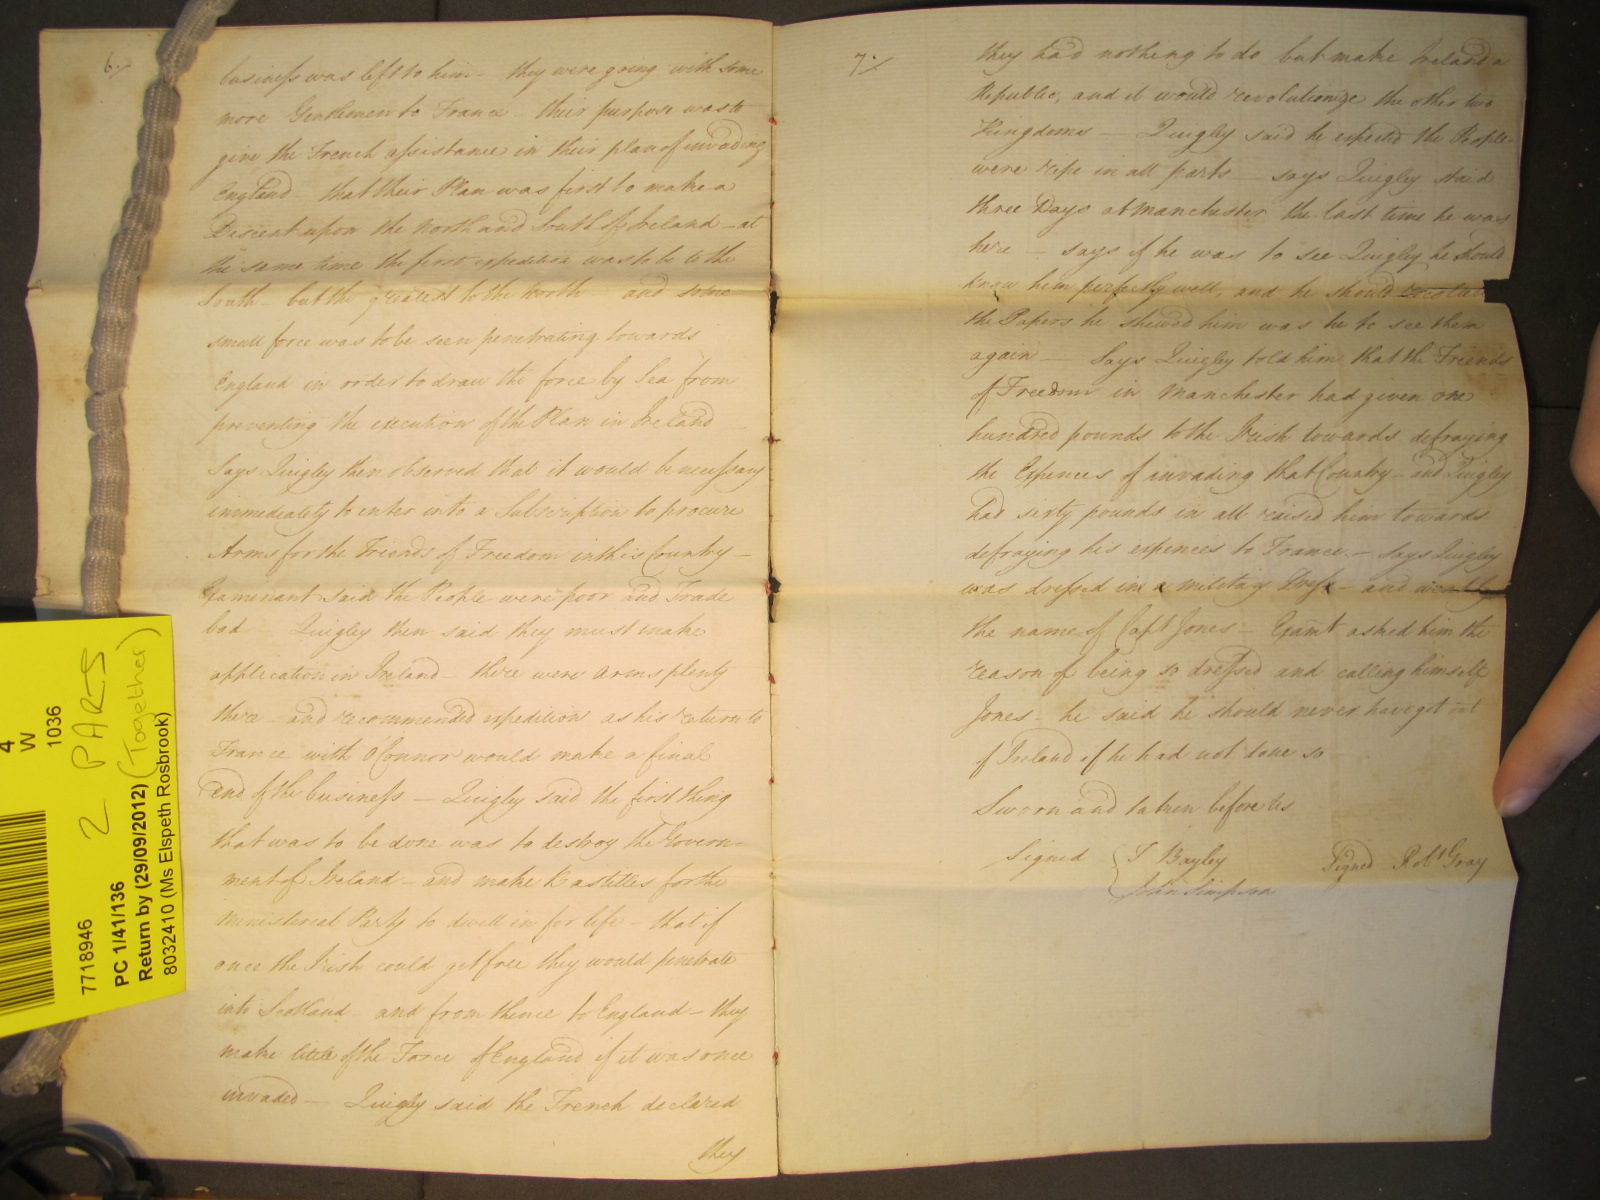 6./
business was left to him - they were going with some
more Gentlemen to France - their purpose was to
give the French assistance in their plan of invading
England - that their Plan was first to make a
Descent upon the North and South of Ireland - at
the same time the first expedition was to be to the
South - but the greatest to the North - and some
small force was to be seen penetrating towards
England in order to draw the force by Sea from
preventing the execution of the Plan in Ireland -
Says Quigley then observed that it would be necessary
immediately to enter into a Subscription to procure
Arms for the Friends of Freedom in this Country -
Examinant said the People were poor and Trade
bad - Quigley then said they must make
application in Ireland - there were Arms plenty
there - and recommended expedition as his return to
France with O'Connor would make a final
End of the business - Quigley said the first thing
that was to be done was to destroy the Govern=
ment of Ireland - and make Bastilles for the
ministerial Party to dwell in for life - that if
once the Irish could get free they would penetrate
into Scotland - and from thence to England - they
make little of the Force of England if it was once
invaded - Quigley said the French declared
they
7./
they had nothing to do but make Ireland a
Republic, and it would revolutionize the other two
Kingdoms - Quigley said he expected the People
were ripe in all parts - says Quigley staid
three Days at Manchester the last time he was
here - says if he was to see Quigley he should
know him perfectly well, and he should recollect
the Papers he shewed him was he to see them
again - Says Quigley told him that the Friends
of Freedom in Manchester had given one
hundred pounds to the Irish towards defraying
the Expences of invading that Country - and Quigley
had sixty pounds in all raised him towards
defraying his expences to France - says Quigley
was dressed in a military Dress - and went by
the name of Capt Jones - Exam.t asked him the
reason of being so dressed and calling himself
Jones - he said he should never have got out
of Ireland if he had not done so -
Sworn and taken before us
Signed { T Bayley
John Simpson
Signed Robt Gray
4
W
1036
2 PARTS
(Together)
7718946
PC 1/41/136
Return by (29/09/2012)
8032410 (Ms Elspeth Rosbrook)